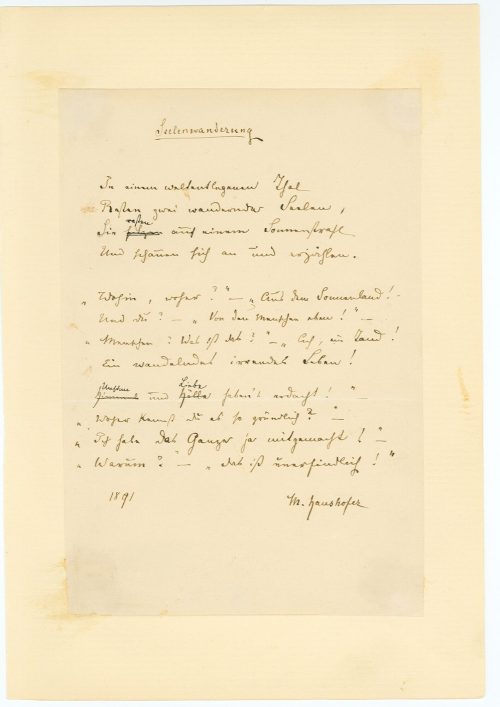 Seelenwanderung
In einem weltentlegenen Thal
Rasten zwei wandernde Seelen,
Sie rasten auf einem Sonnenstrahl
Und schauen sich an und erzählen.
„Wohin, woher?" — „Aus dem Sonnenland! -
Und du? — „Von den Menschen eben!" —
„Menschen? Was ist das?" — „Ach, ein Tand!
Ein wandelndes irrendes Leben!
Liebe
und Hölle haben's erdacht!"
„Woher kennst du es so gründlich?" —
„Ich habe das Ganze ja mitgemacht!" —
„Warum?" — „Das ist unerfindlich!"
1891 M. Haushofer